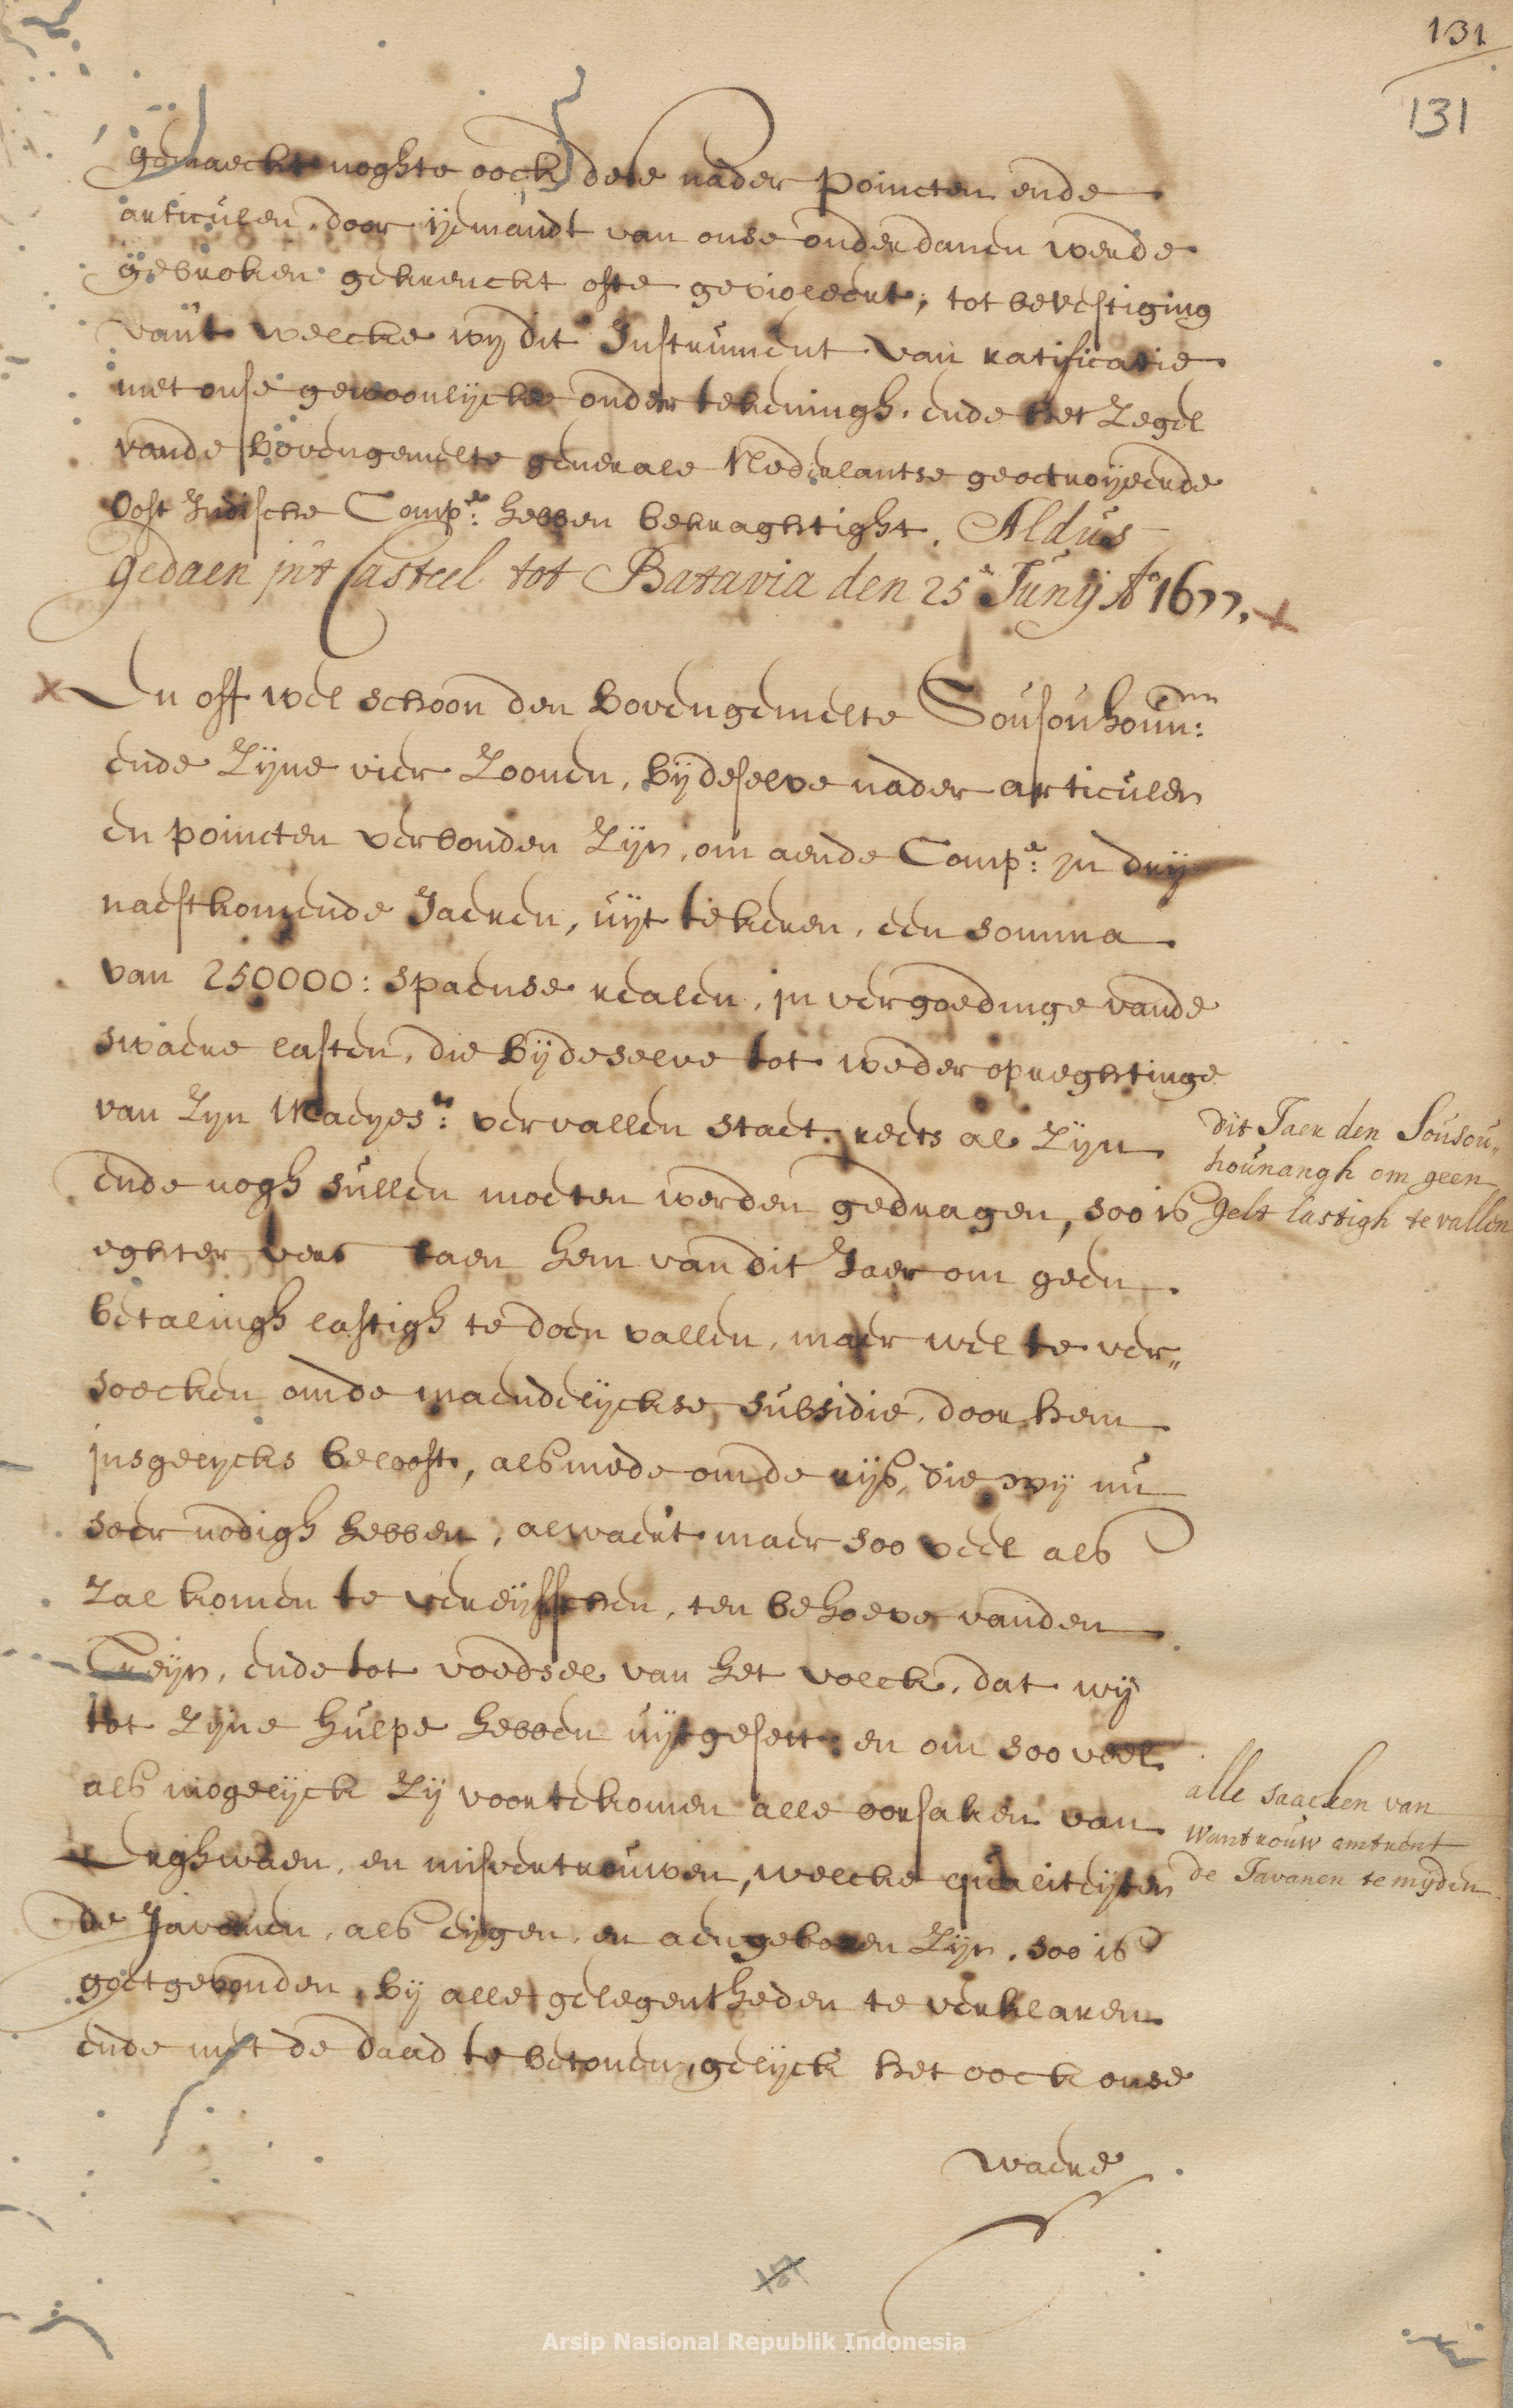 131
131
gemaeckt noghte oock dese nader poincten ende
articulen, door ijemandt van onse onderdanen werde
gebroken gekrenckt ofte gevioleert; tot bevestiging
van't welcke wij dit Instrument van ratificatie
met onse gewoonlijcke ondertekeningh, ende het Zegel
vande bovengemelte generale Nederlantse geoctroijeerde
Oost Indische Compe: hebben bekraghtight. Aldus
gedaen in't Casteel tot Batavia den 25e Junij Ao 1677.
En off wel schoon den bovengemelte Sousouhounn:
ende Zijne vier Zoonen, bij deselve nader articulen
en poincten verbonden Zijn, om aende Compe: in drij
naestkomende Jaeren, uijt te keren, een somma
van 250000: spaense realen, in vergoedinge vande
swaere lasten, die bij deselve tot weder opreghtinge
van Zijn Maeyest: vervallen staet reets al Zijn
ende nogh sullen moeten werden gedragen, soo is
eghter verstaen hem van dit Jaer om geen
betalingh lastigh te doen vallen, maer wel te ver„
soecken om de maendelijckse subsidie, door hem
insgelycks belooft, als mede om de rijs, die wij nu
seer nodigh hebben, al waer't maer soo veel als
Zal komen te vereijsschen, ten behoeve vanden
Treijn, ende tot voedsel van het volck, dat wij
tot Zijne hulpe hebben uijtgeset: en om soo veel
als mogelijck Zij voortekomen alle oorsaken van
Erghwaen, en misvertrouwen, welcke qualiteijten
de Javanen, als eijgen, en aengeboren Zijn, soo is
goetgevonden, bij alle gelegentheden te verklaren
ende met de daad te betonen, gelijck het oock onse
waere
dit Jaer den Sousou„
hounangh om geen
gelt lastigh te vallen
alle saacken van
wantrouw omtrent
de Javanen te mijden
Arsip Nasional Republik Indonesia